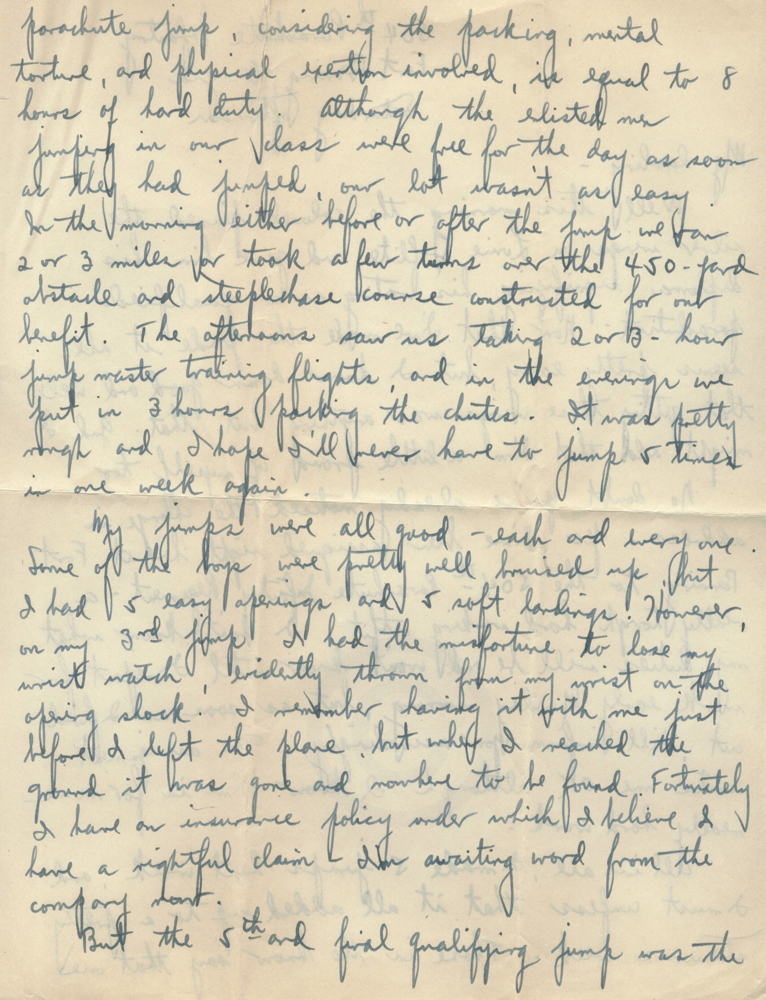 parachute jump, considering the packing, mental
torture, and physical exertion involved, is equal to 8
hours of hard duty. Although the elisted men
jumping in our class were free for the day as soon
as they had jumped, our lot wasn't as easy.
In the morning either before or after the jump we ran
2 or 3 miles or took a few turns over the 450-yard
obstacle and steeplechase course constructed for our
benefit. The afternoons saw us taking 2 or 3-hour
jump master training flights, and in the evenings we
put in 3 hours packing the chutes. It was pretty
rough and I hope I'll never have to jump 5 times
in one week again.
My jumps were all good - each and every one.
Some of the boys were pretty well bruised up, but
I had 5 easy openings and 5 soft landings. However,
on my 3rd jump I had the misfortune to lose my
wrist watch, evidently thrown from my wrist on the
opening shock. I remember having it with me just
before I left the plane, but when I reached the
ground it was gone and nowhere to be found. Fortunately
I have an insurance policy under which I believe I
have a rightful claim - I'm awaiting word from the
company now.
But the 5th and final qualifying jump was the